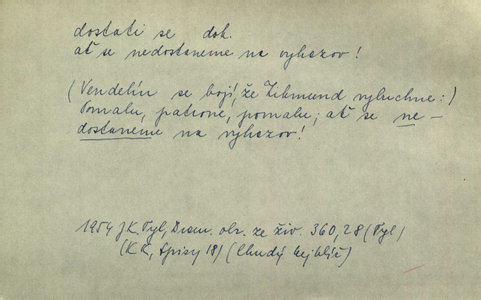 dostati se dok.
ať se nedostaneme na vyhazov!
(Vendelín se bojí, že Zikmund vybuchne:)
Pomalu, patrone, pomalu; ať se ne-
dostaneme na vyhazov!
1954 JK. Tyl, Dram. obr. ze živ. 360, 28 (Tyl)
(KK, Spisy 18) (Chudý kejklíř)